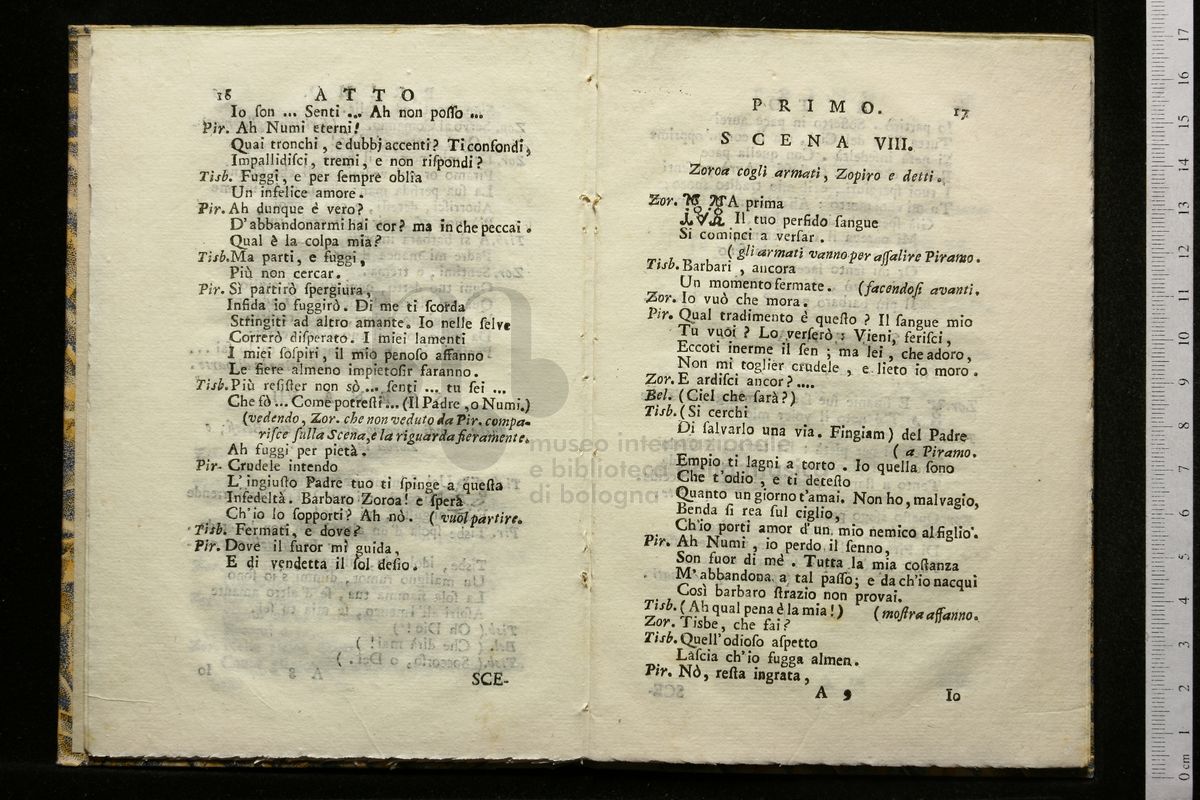 16 ATTO
Io ſon ... Senti ... Ah non poſſo ...
Pir. Ah Numi eterni!
Quai tronchi, e dubbj accenti? Ti confondi,
Impallidiſci, tremi, e non riſpondi?
Tisb. Fuggi, e per ſempre oblìa
Un' infelice amore.
Pir. Ah dunque è vero?
D'abbandonarmi hai cor? ma in che peccai.
Qual è la colpa mia?
Tisb. Ma parti, e fuggi,
Più non cercar.
Pir. Sì partirò ſpergiura,
Infida io fuggirò. Di me ti ſcorda
Stringiti ad altro amante. Io nelle ſelve
Correrò diſperato. I miei lamenti
I miei ſoſpiri, il mio penoſo affanno
Le fiere almeno impietoſir faranno.
Tisb. Più reſiſter non sò ... ſenti ... tu ſei ...
Che fò ... Come potreſti ... (Il Padre, o Numi.)
(vedendo, Zor. che non veduto da Pir. compa-
riſce ſulla Scena, e la riguarda fieramente.
Ah fuggi per pietà.
Pir- Crudele intendo
L'ingiuſto Padre tuo ti ſpinge a queſta
Infedeltà. Barbaro Zoroa! e ſperà
Ch'io lo ſopporti? Ah nò. (vuol partire.
Tisb. Fermati, e dove?
Pir. Dove il furor mi guida,
E di vendetta il ſol deſio.
SCE-
PRIMO. 17
SCENA VIII.
Zoroa cogli armati, Zopiro e detti.
Zor. A prima
Il tuo perfido ſangue
Si cominci a verſar.
(gli armati vanno per aſſalire Piramo.
Tisb. Barbari, ancora
Un momento fermate. (facendoſi avanti.
Zor. Io vuò che mora.
Pir. Qual tradimento è queſto? Il ſangue mio
Tu vuoi? Lo verſerò: Vieni, feriſci,
Eccoti inerme il ſen; ma lei, che adoro,
Non mi toglier crudele, e lieto io moro.
Zor. E ardiſci ancor?....
Bel. (Ciel che ſarà?)
Tisb. (Si cerchi
Di ſalvarlo una via. Fingiam) del Padre
(a Piramo.
Empio ti lagni a torto. Io quella ſono
Che t'odio, e ti deteſto
Quanto un giorno t'amai. Non ho, malvagio,
Benda ſi rea ſul ciglio,
Ch'io porti amor d'un mio nemico al figlio.
Pir. Ah Numi, io perdo il ſenno,
Son fuor di me. Tutta la mia coſtanza
M'abbandona a tal paſſo; e da ch'io nacqui
Così barbaro ſtrazio non provai.
Tisb. (Ah qual pena è la mia!) (moſtra affanno.
Zor. Tisbe, che fai?
Tisb. Quell'odioſo aſpetto
Laſcia ch'io fugga almen.
Pir. Nò, reſta ingrata,
A 9 Io
museo internazionale
e biblioteca
di bologna
0 cm 1 2 3 4 5 6 7 8 9 10 11 12 13 14 15 16 17